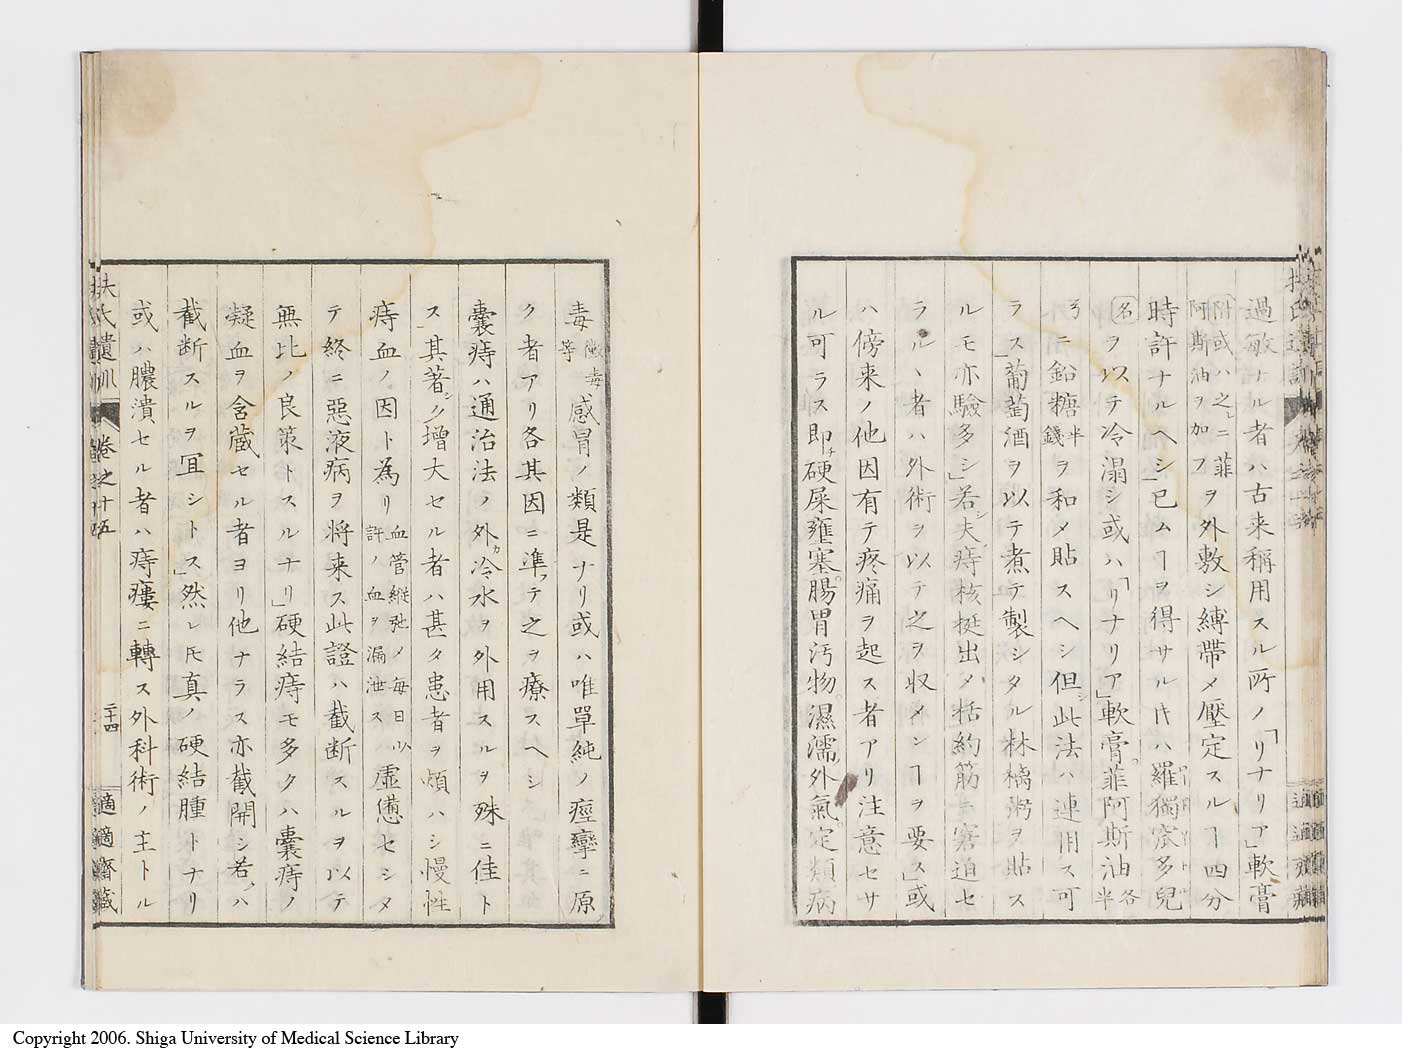 過敏ナル者ハ古来稱用スル所ノ「リナリア」軟膏
附或ハ之ニ菲阿斯油ヲ加フヲ外敷シ縛帶メ壓定スルヿ四分
時許ナルヘシ」已ムヿヲ得サル片ハ羅獨宸多兒
名ヲ以テ冷溻シ或ハ「リナリア」軟膏。菲阿斯油各半
ろニ鉛糖半錢ヲ和メ貼スヘシ但シ此法ハ連用ス可
ラス」葡萄酒ヲ以テ煮テ製シタル林檎粥ヲ貼ス
ルモ亦驗多シ」若シ夫痔核挺出メ括約筋ニ窘迫セ
ラルヽ者ハ外術ヲ以テ之ヲ収メンヿヲ要ス」或
ハ傍来ノ他因有テ疼痛ヲ起ス者アリ注意セサ
ル可ラス即チ硬屎壅塞。腸胃汚物。濕濡外氣。定類病
毒黴毒等感冒ノ類是ナリ或ハ唯單純ノ痙攣ニ原
ク者アリ各其因ニ準テ之ヲ療スヘシ
囊痔ハ通治法ノ外冷水ヲ外用スルヲ殊ニ佳ト
ス」其著シク増大セル者ハ甚タ患者ヲ煩ハシ慢性
痔血ノ因ト為リ血管縦弛メ毎日以許ノ血ヲ漏泄ス虛憊セシメ
テ終ニ惡液病ヲ将来ス此證ハ截断スルヲ以テ
無比ノ良策トスルナリ」硬結痔モ多クハ囊痔ノ
凝血ヲ含蔵セル者ヨリ他ナラス亦截開シ若クハ
截断スルヲ冝シトス」然レ𪜈真ノ硬結腫トナリ
或ハ膿潰セル者ハ痔瘻ニ轉ス外科術ノ主トル
扶氏遺訓 卷之十五 二十四 適適齋藏
Copyright 2006. Shiga University of Medical Science Library